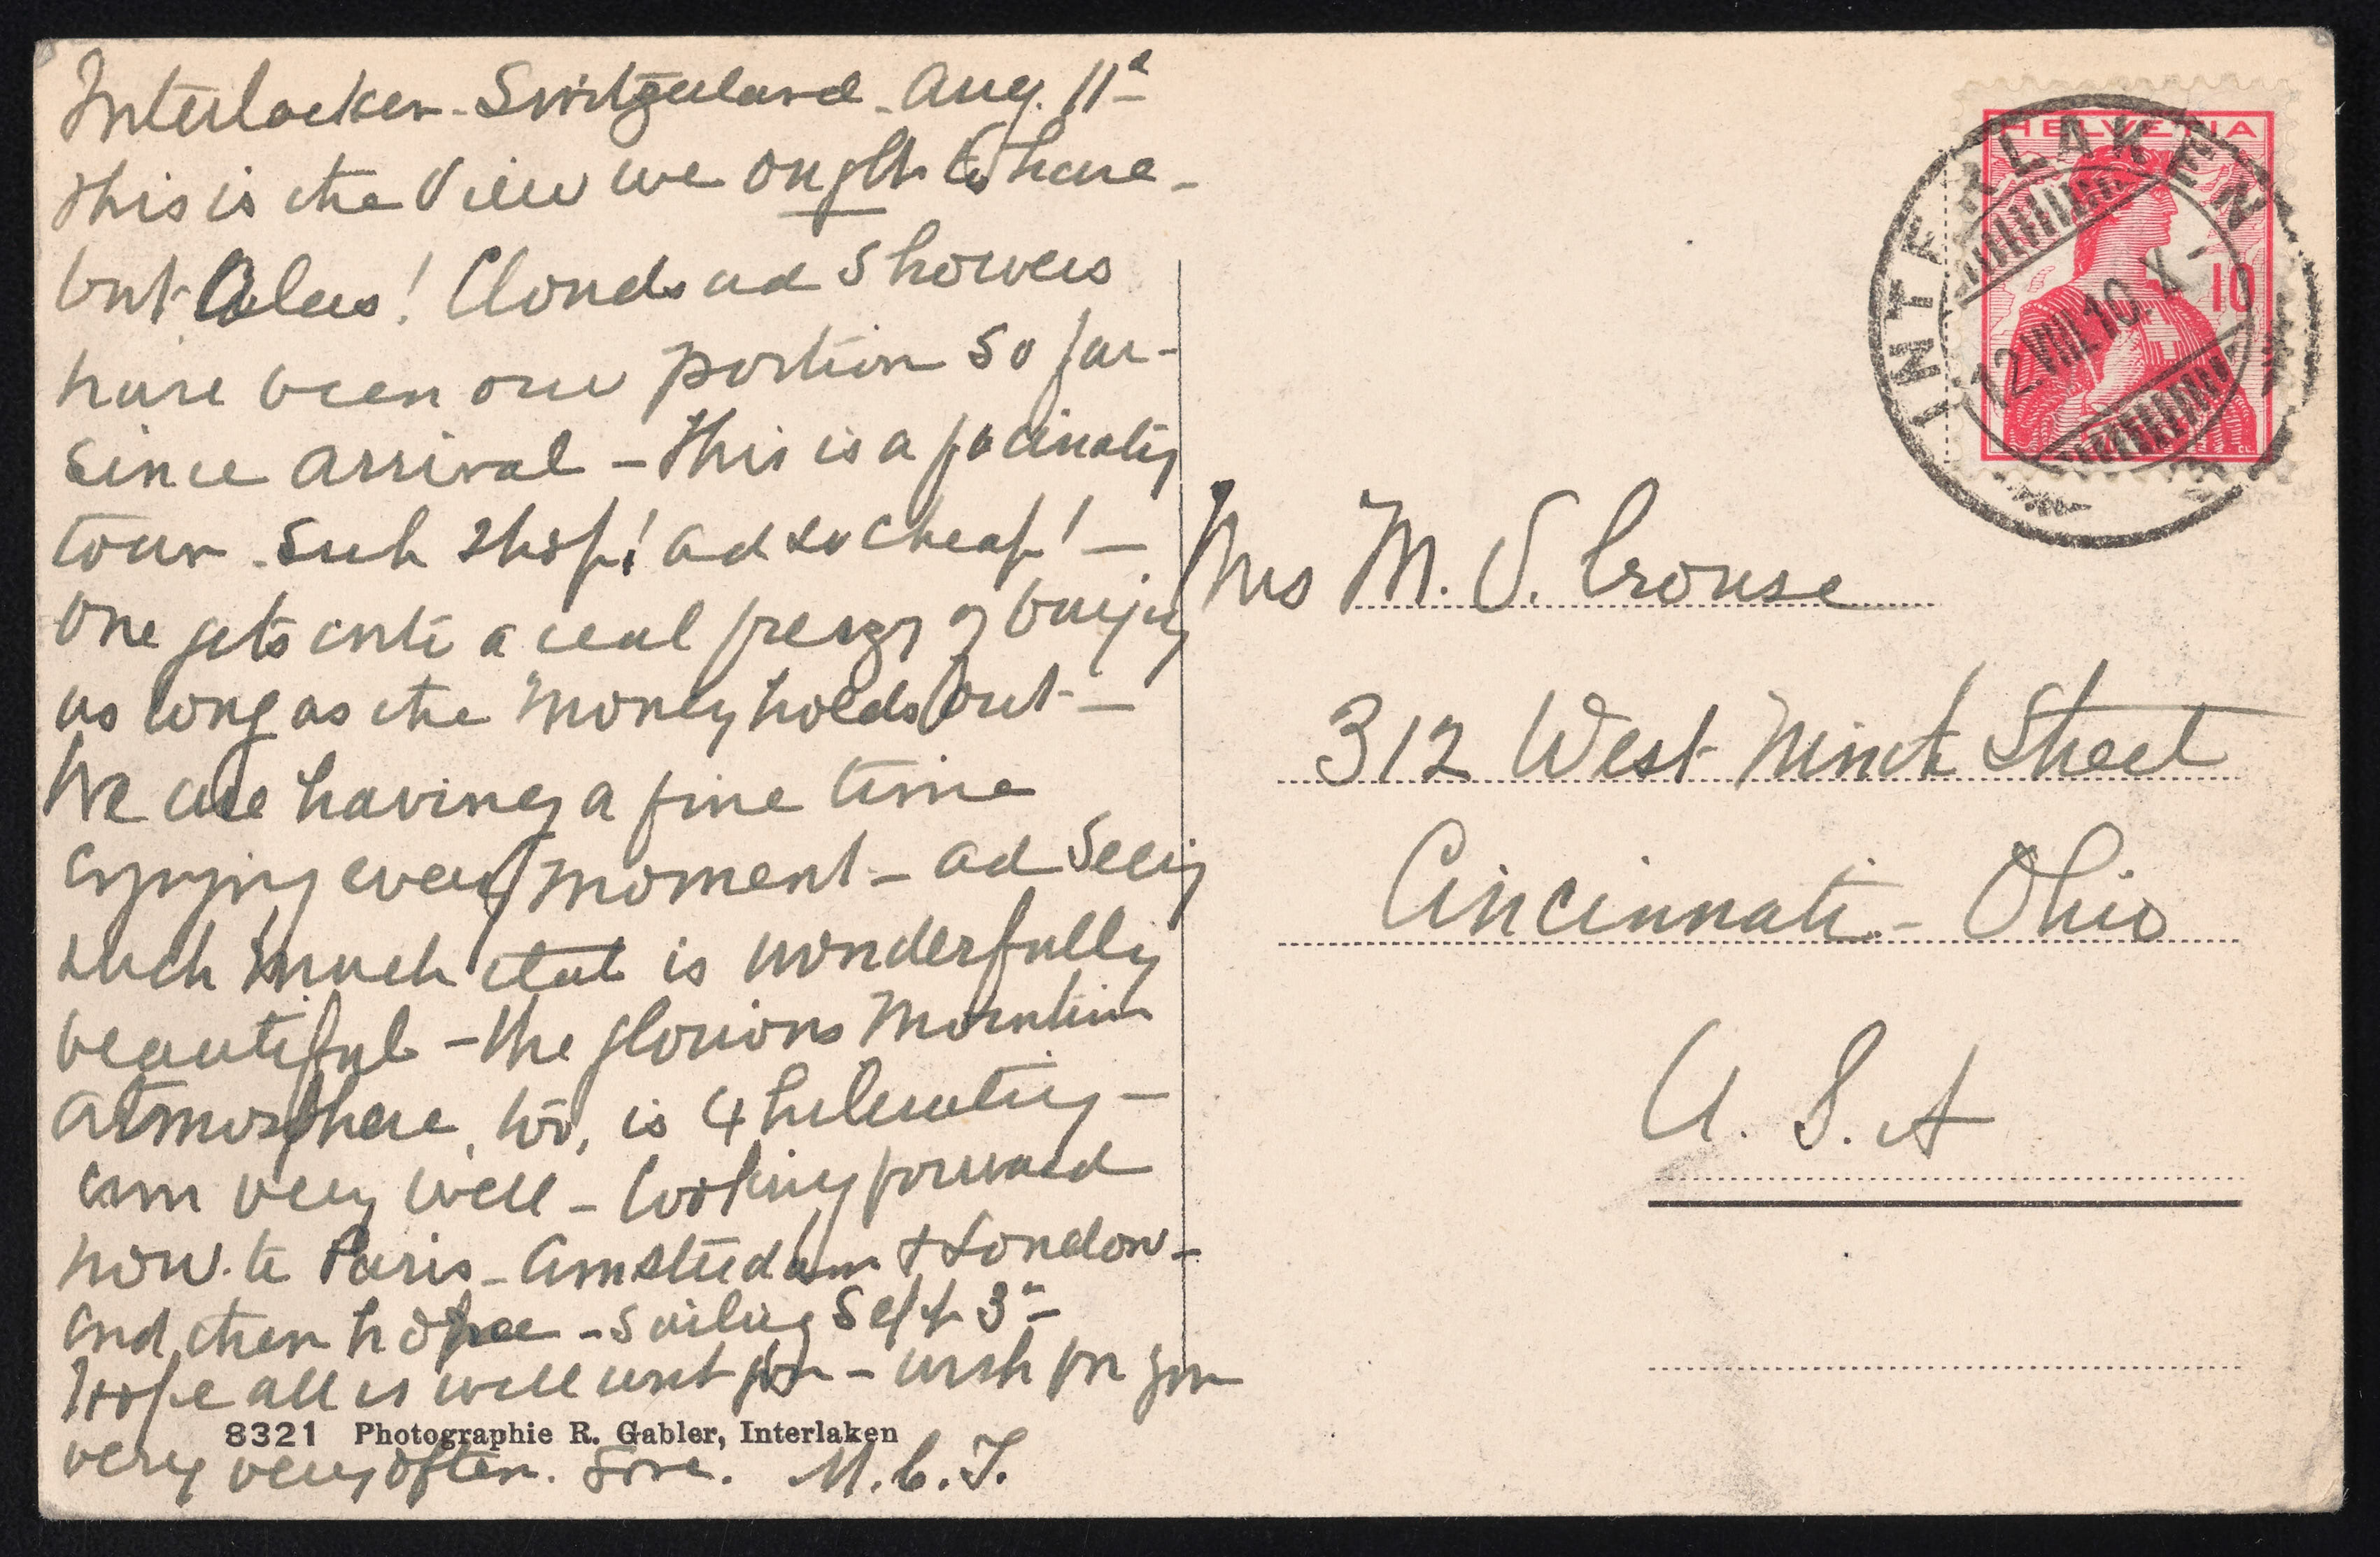 Interlacken - Switzerland - Aug. 11th
This is the View we ought to have -
but Alas! Clouds and Showers
have been our portion so far -
since arrival - This is a facinating
town - Such shops! and so cheap! -
One gets into a real frenzy of buying
as long as the money holds out -
We are having a fine time
enjoying every moment - and seeing
such much that is wonderfully
beautiful - The glorious Mountain
Atmosphere, too, is exhilerating -
am very well - looking forward
now to Paris - Amsterdam + London -
and then home - sailing Sept 3rd
Hope all is well with you - wish for you
8321 Photographie R. Gabler, Interlaken
very very often. Love. M.C.J.
HELVETIA
10
INTERLAKEN
12 VIII 10. X -
Mrs M. S. Crouse
312 West Ninth Street
Cincinnati - Ohio
U. S. A